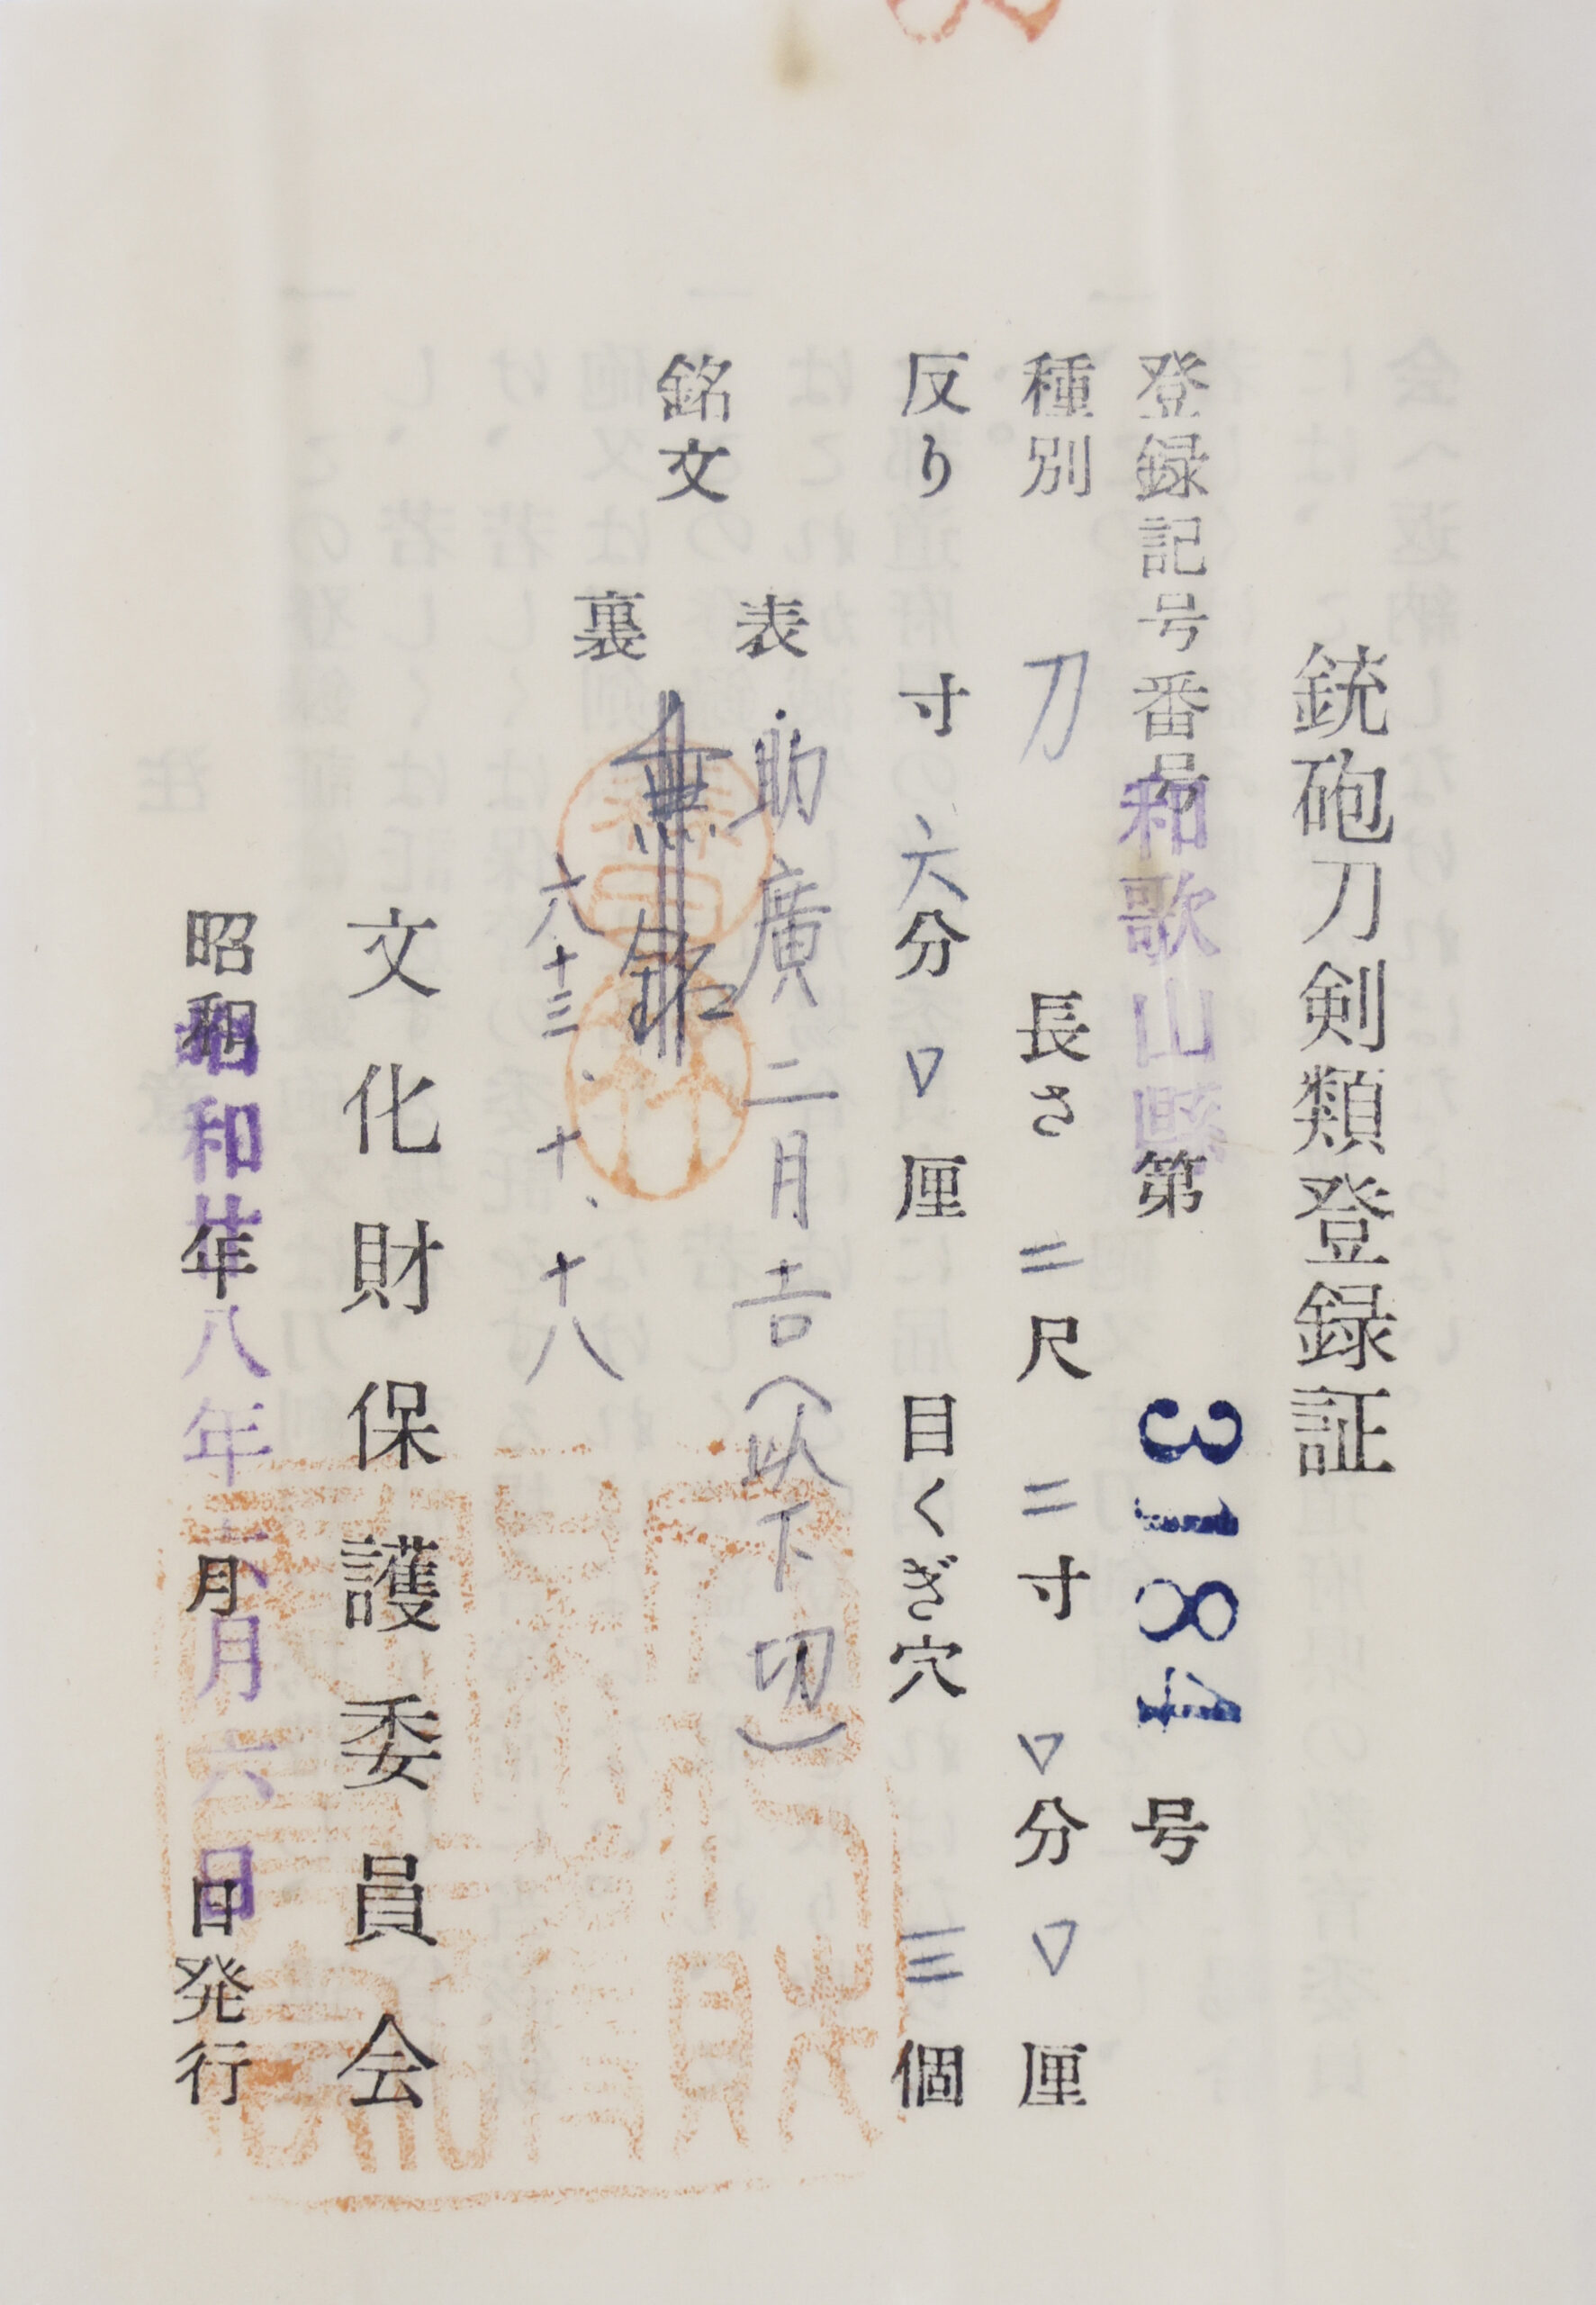 銃砲刀剣類登録証
登録記号番号 和歌山縣 第 3184 号
種別 刀 長さ 二尺 二寸 〇分 〇厘
反り 寸 六分 〇厘 目くぎ穴 三個
銘文
表 助廣二月吉(以下切)
裏 無銘
六十三、十、十八
文化財保護委員会
昭和 年 月 日発行
昭和廿八年 月六日